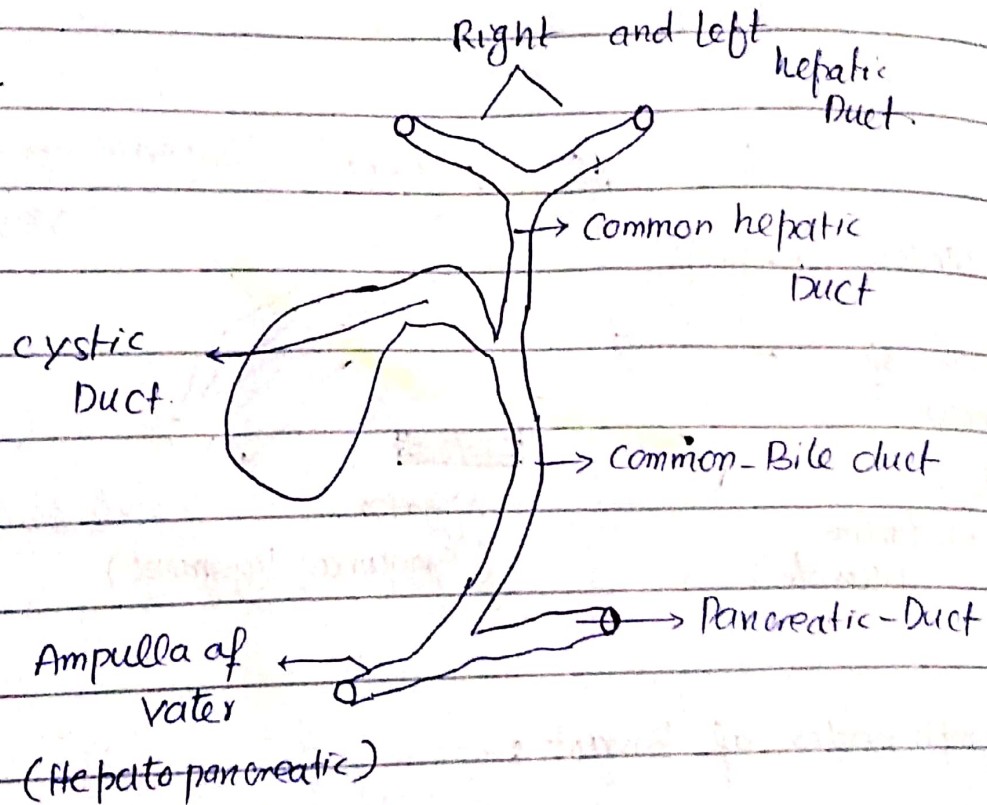 Right and left
hepatic
Duct.
Common hepatic
Duct
cystic
Duct.
Common-Bile duct
Pancreatic-Duct
Ampulla of
Vater
(Hepatopancreatic)